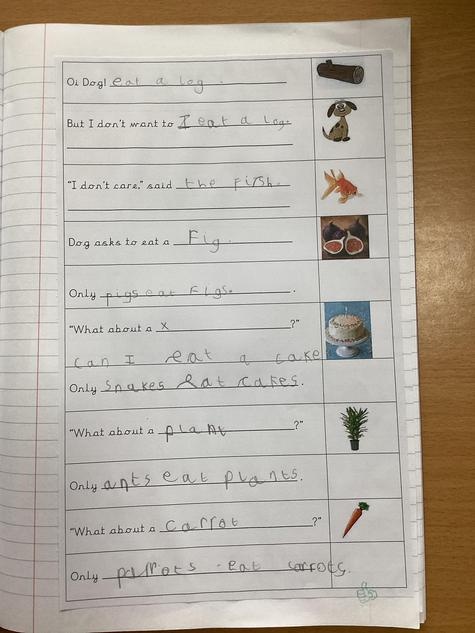 Oi Dog! eat a log.
But I don't want to I eat a log.
"I don't care," said the firsh.
Dog asks to eat a Fig.
Only pigs eat Figs. .
"What about a x ?"
can I eat a cake
Only snakes eat cakes.
"What about a plant ?"
Only ants eat plants.
"What about a carrot ?"
Only parrots eat carrots.